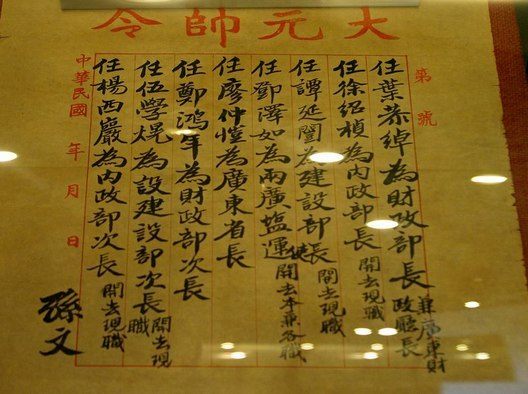 大元帥令
第 號
任葉恭綽為財政部長兼廣東財政廳長
任徐紹楨為內政部長開去現職
任譚延闓為建設部長開去現職
任鄧澤如為兩廣塩運使開去本兼各職
任廖仲愷為廣東省長
任鄭鴻年為財政部次長
任伍學熀為設建設部次長開去現職
任楊西巖為內政部次長開去現職
中華民國 年 月 日
孫文